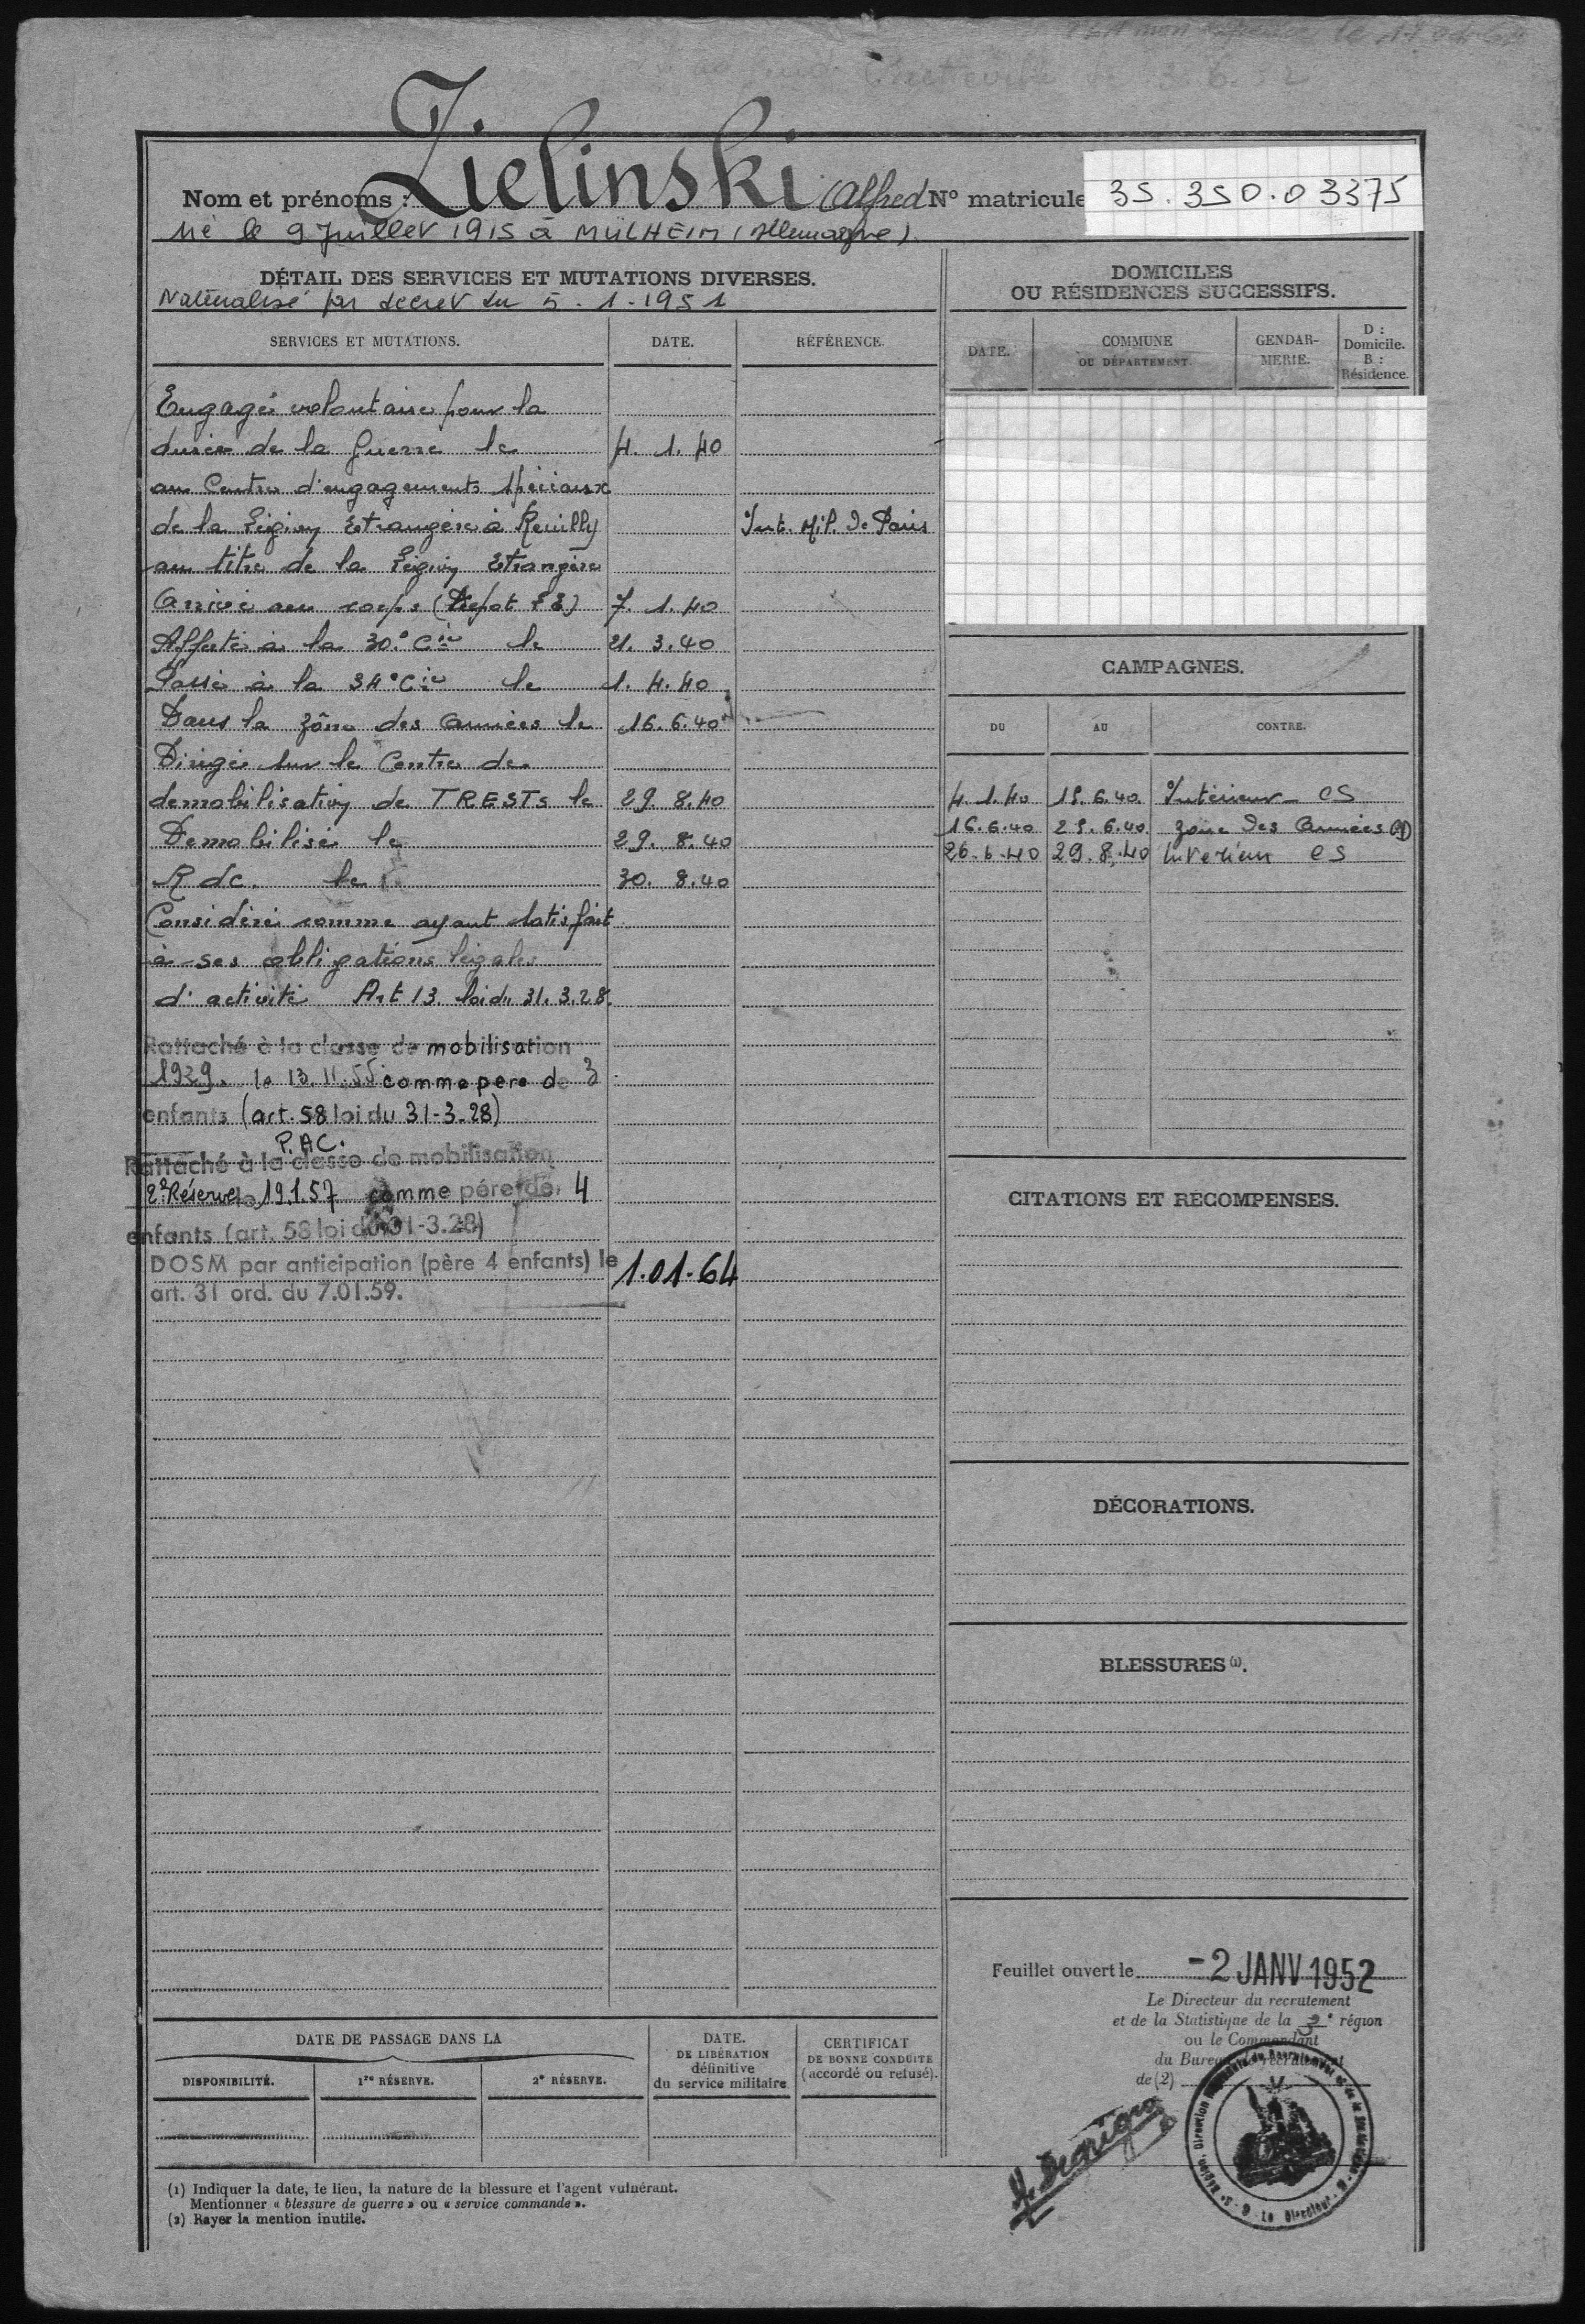 Nom et prénoms : Zielinski (Alfred Nº matricule 35.350.03375
Né le 9 Juillet 1915 à MÜLHEIM (Allemagne).
DÉTAIL DES SERVICES ET MUTATIONS DIVERSES.
Naturalisé par decret du 5.1.1951
SERVICES ET MUTATIONS. DATE. RÉFÉRENCE.
Engagé volontaire pour la
durée de la Guerre le 4. 1. 40
au Centre d'engagements spéciaux
de la Légion Etrangère à Reuilly Int. Mil. de Paris
au titre de la Légion Etrangère
Arrivé au corps (Depot LE) 7. 1. 40
Affecté à la 30° Cie le 21. 3. 40
Passé à la 34° Cie le 1. 4. 40
Dans la zône des armées le 16. 6. 40
Dirigé sur le Centre de
demobilisation de TRESTS le 29. 8. 40
Demobilisé le 29. 8. 40
R dc. le 30. 8. 40
Considéré comme ayant satisfait
à ses obligations légales
d'activité Art 13. loi du 31. 3. 28.
Rattaché à la classe de mobilisation
1929. le 13.11.55 comme pere de 3
enfants (art. 58 loi du 31-3.28)
P.AC.
Rattaché à la classe de mobilisation
2e Réserve le 19.1.57 comme pére de 4
enfants (art. 58 loi du 31-3.28)
DOSM par anticipation (père 4 enfants) le 1.01.64
art. 31 ord. du 7.01.59.
DATE DE PASSAGE DANS LA
DISPONIBILITÉ. 1re RÉSERVE. 2e RÉSERVE.
DATE.
DE LIBÉRATION
définitive
du service militaire
CERTIFICAT
DE BONNE CONDUITE
(accordé ou refusé).
(1) Indiquer la date, le lieu, la nature de la blessure et l'agent vulnérant.
Mentionner « blessure de guerre » ou « service commandé ».
(2) Rayer la mention inutile.
DOMICILES
OU RÉSIDENCES SUCCESSIFS.
DATE. COMMUNE OU DÉPARTEMENT. GENDAR-MERIE. D : Domicile. R : Résidence.
CAMPAGNES.
DU AU CONTRE.
4.1.40 15.6.40 Intérieur CS
16.6.40 25.6.40 zone des Armées
26.6.40 29.8.40 Interieur CS
CITATIONS ET RÉCOMPENSES.
DÉCORATIONS.
BLESSURES (1).
Feuillet ouvert le -2 JANV 1952
Le Directeur du recrutement
et de la Statistique de la 3e région
ou le Commandant
du Bureau de recrutement
de (2)